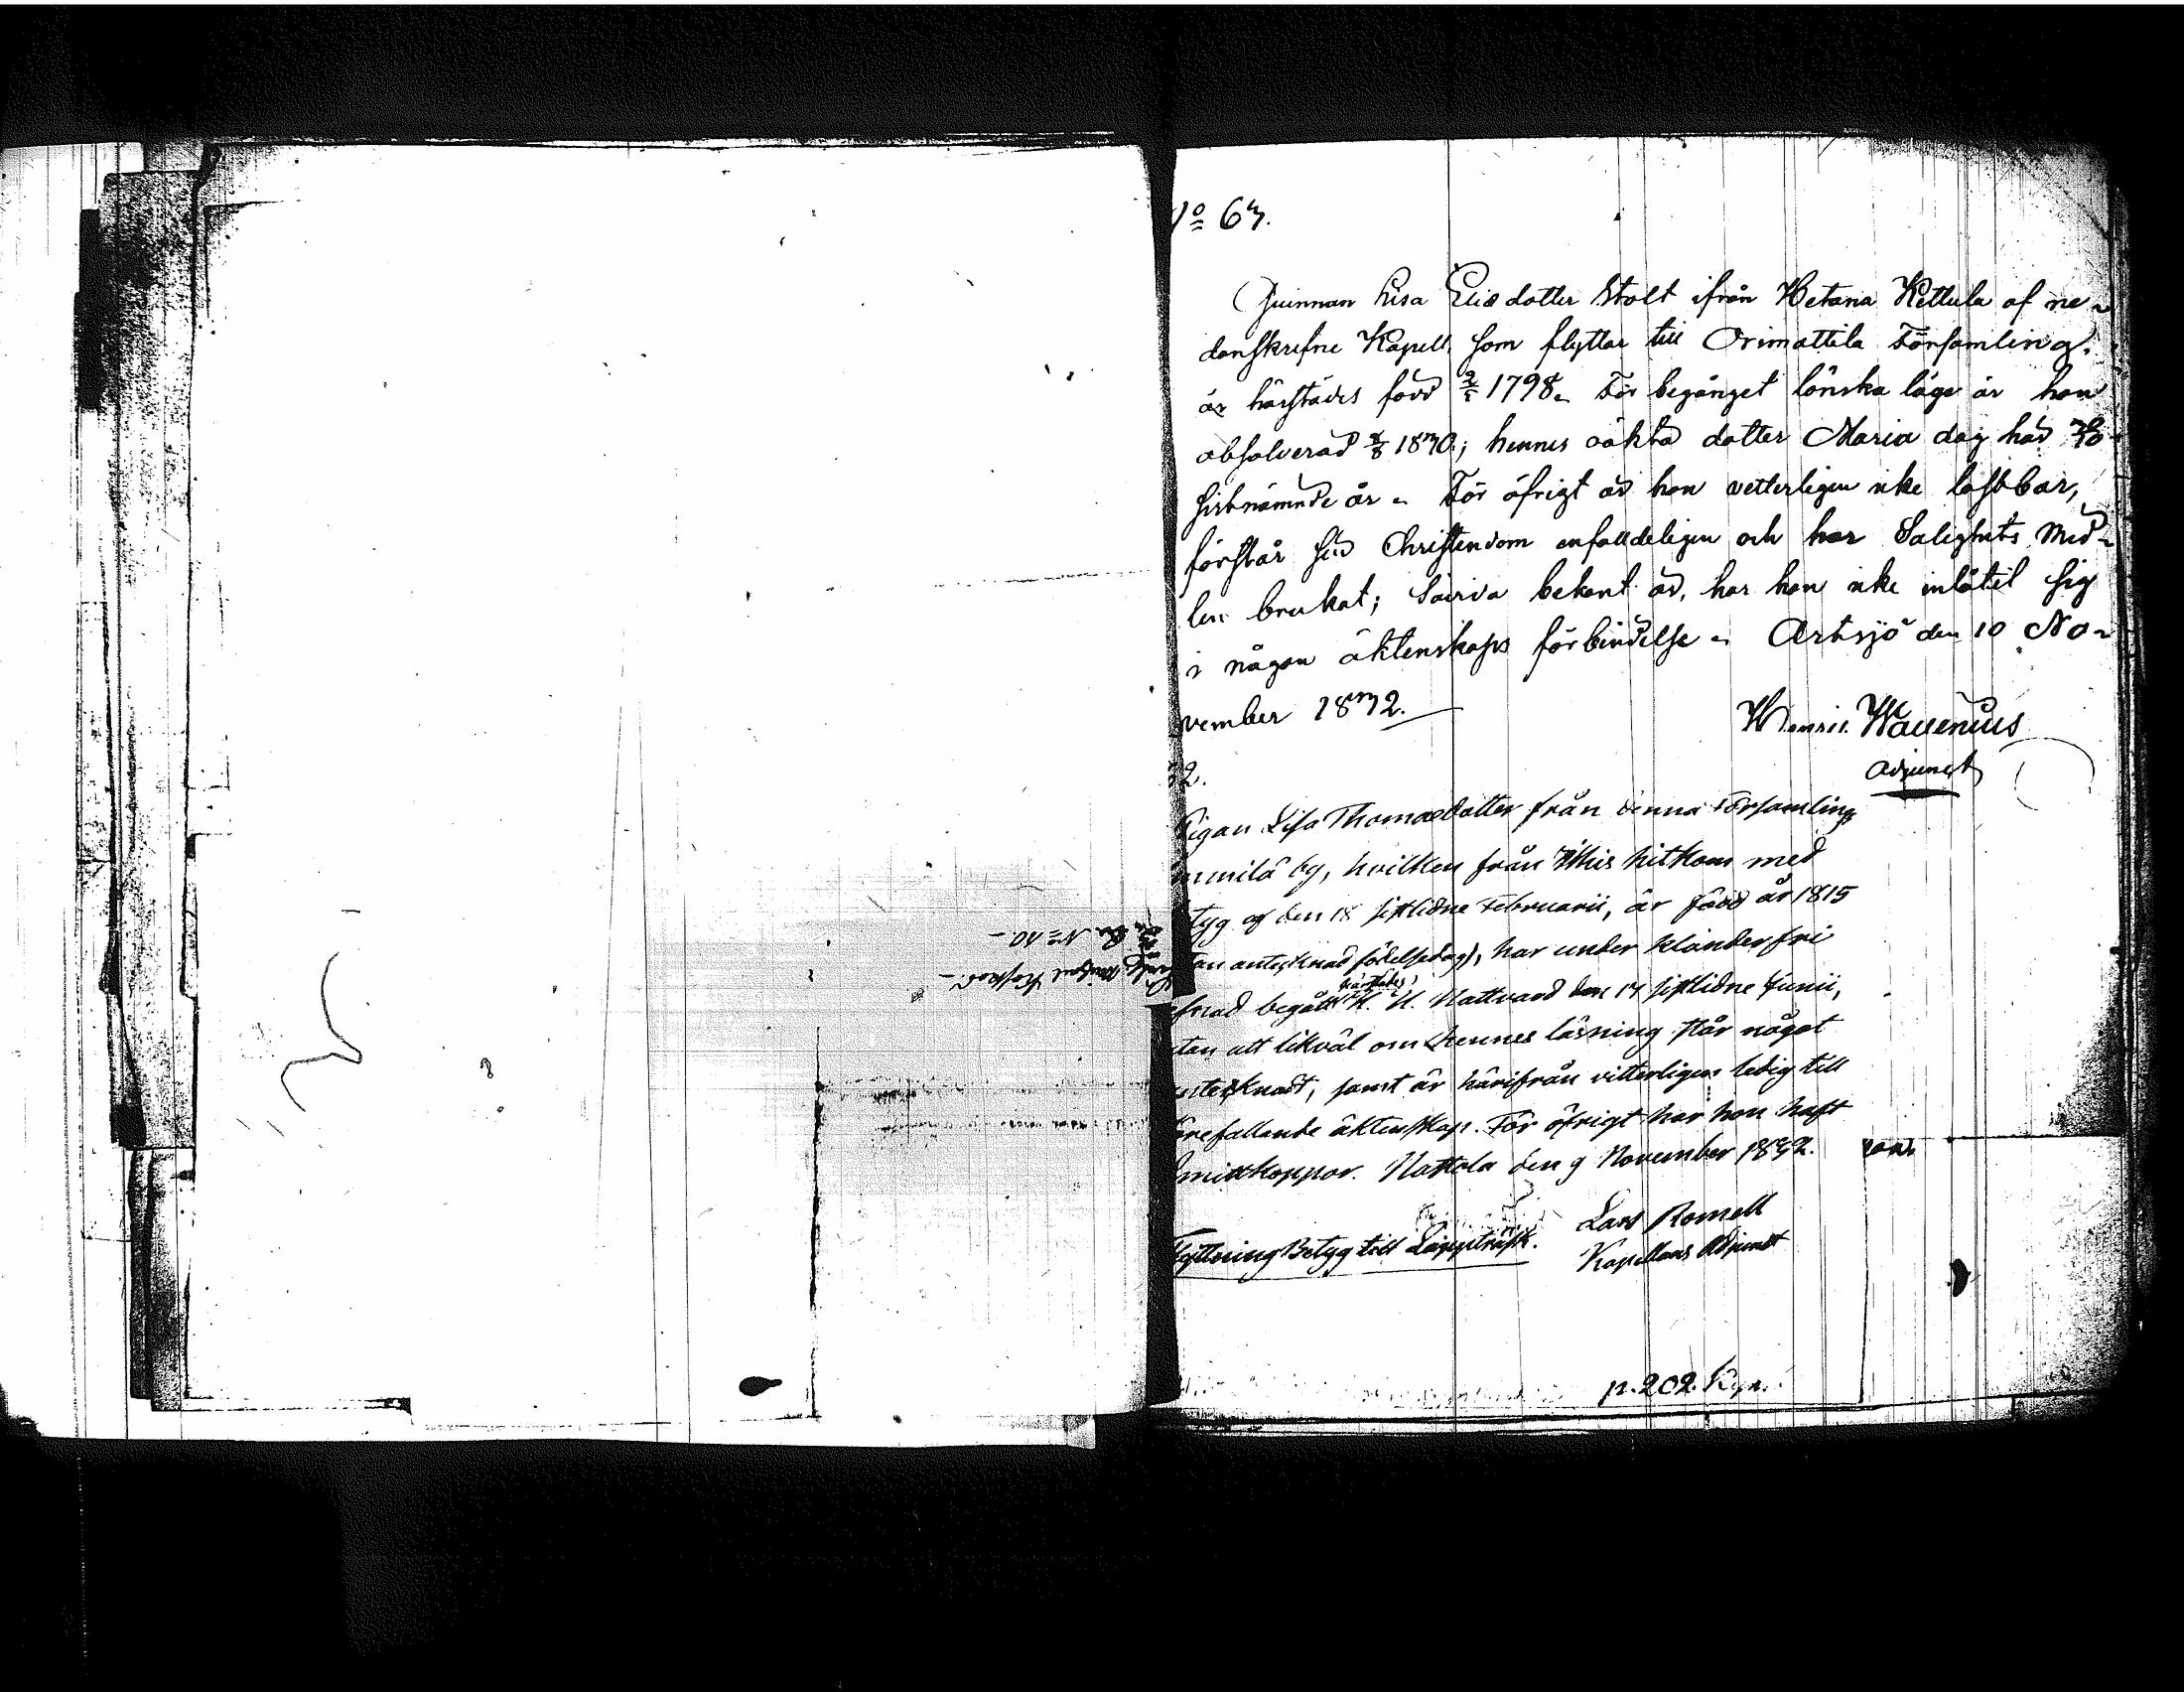 No 63.
Quinnan Lisa Eliædotter Stolt ifrån Hetana Kettula af ne-
danskrefne Kapell, som flyttar till Orimattila Församling,
är härstädes född 1798. För begånget lönska läge är hon
absolverad 1830; hennes oäkta dotter Maria dog här
sistnämnde år. För öfrigt är hon vetterligen icke läsbar,
förstår sin Christendom enfaldeligen och har Salighets Med-
len brukat; Såvida bekant är, har hon icke inlåtit sig
i någon äktenskaps förbindelse. Artsjö den 10 No-
vember 1832.
Henric Wavenius
Adjunct
32.
Pigan Lisa Thomædotter från denna Församling
by, hvilken från hitkom med
tyg af den 18 sistlidne Februarii, är född år 1815
tan antecknad födelsedag), har under klanderfri
härstädes
efnad begått H. H. Nattvard den 17 sistlidne Junii,
utan att likväl om hennes läsning står något
antecknadt, samt är härifrån vitterligen ledig till
förefallande äktenskap. För öfrigt har hon haft
Smittkoppor. Nattola den 9 November 1832.
Lars Romell
Kapellans Adjunct
Flyttning Betyg till Lappträsk.
p. 202. Kyn.
No 10.